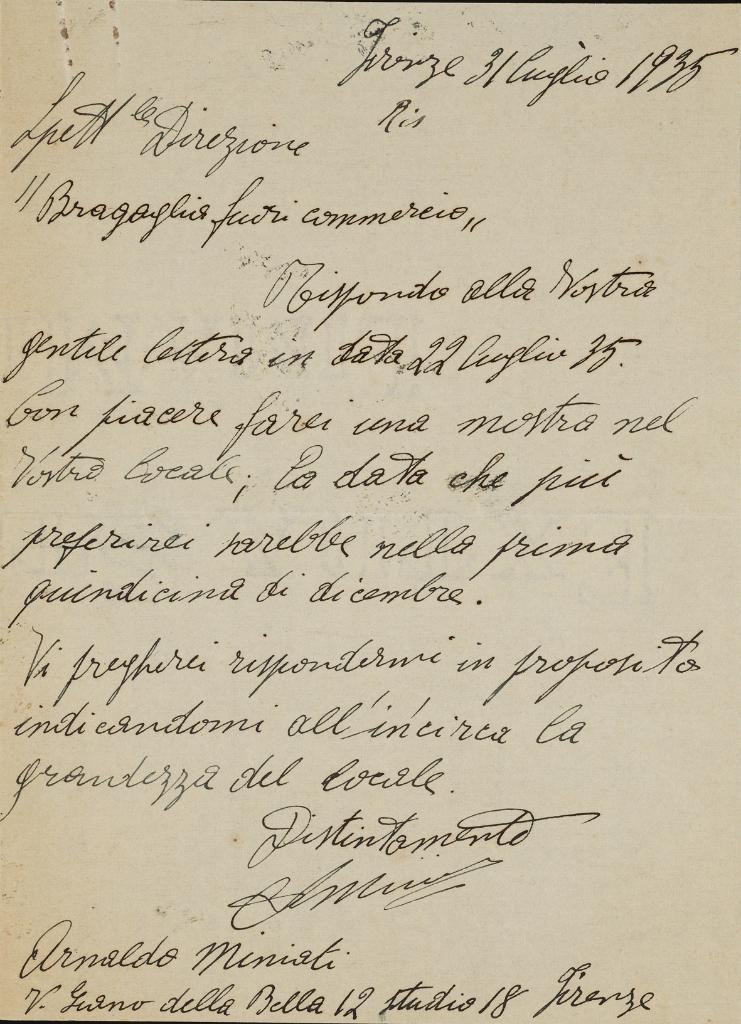 Firenze 31 luglio 1935
Ris
Spett.le Direzione
"Bragaglia fuori commercio„
Rispondo alla Vostra
gentile lettera in data 22 luglio 35.
Con piacere farei una mostra nel
Vostro locale; la data che più
preferirei sarebbe nella prima
quindicina di dicembre.
Vi pregherei rispondermi in proposito
indicandomi all'incirca la
grandezza del locale.
Distintamente
Arnaldo Miniati
V. Giano della Bella 12 studio 18 Firenze